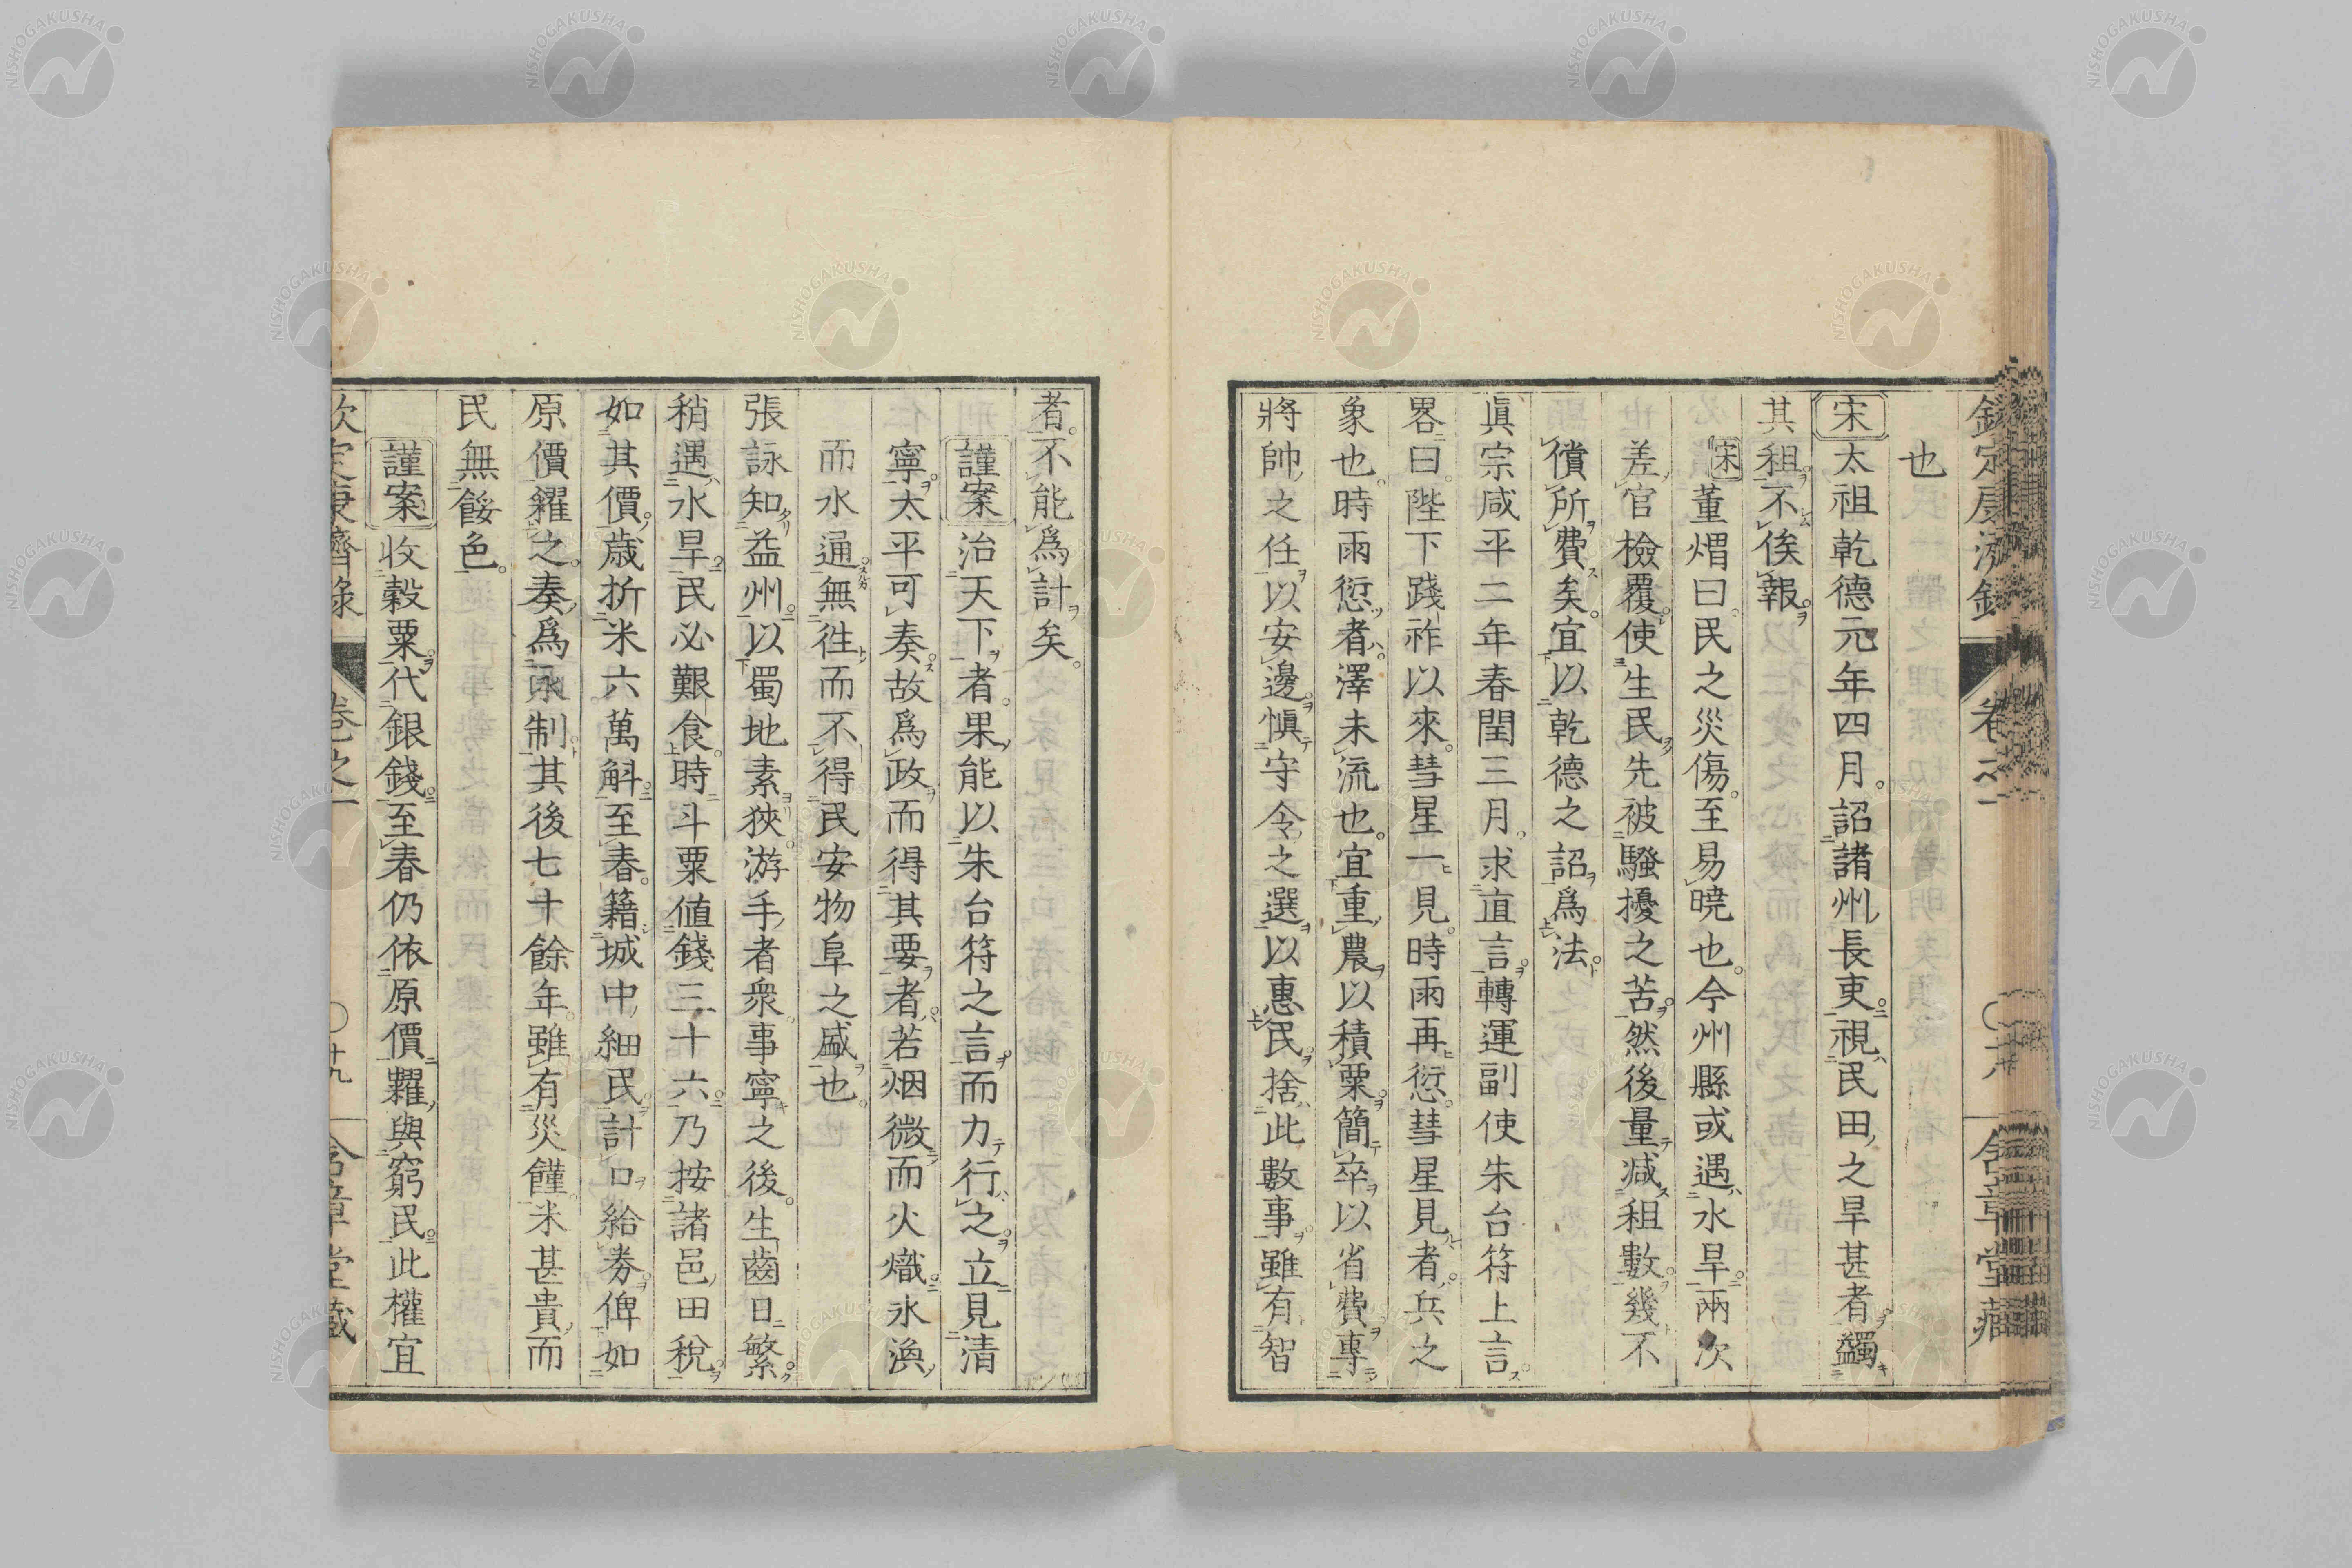 也
宋太祖乾德元年四月。詔諸州長吏。視民田之旱甚者。蠲
其租。不俟報。
宋董煟曰。民之災傷。至易曉也。今州縣或遇水旱。兩次
差官檢覆。使生民先被騷擾之苦。然後量减租數。幾不
償所費矣。宜以乾德之詔爲法。
眞宗咸平二年春閏三月。求直言。轉運副使朱台符上言。
畧曰。陛下踐祚以來。彗星一見。時雨再愆。彗星見者。兵之
象也。時雨愆者。澤未流也。宜重農以積粟。簡卒以省費。專
將帥之任。以安邊。愼守令之選。以惠民。捨此數事。雖有智
者。不能爲計矣。
謹案治天下者。果能以朱台符之言。而力行之。立見清
寧。太平可奏。故爲政而得其要者。若烟微而火熾。氷渙
而水通。無徃而不得民安物阜之盛也。
張詠知益州。以蜀地素狹。游手者衆。事寧之後。生齒日繁。
稍遇水旱。民必艱食。時斗粟値錢三十六。乃按諸邑田稅。
如其價。歳折米六萬斛。至春。籍城中細民。計口給劵。俾如
原價糴之。奏爲永制。其後七十餘年。雖有災饉。米甚貴。而
民無餒色。
謹案收穀粟。代銀錢。至春仍依原價糶與窮民。此權宜
欽定康濟錄 卷之一 〇廿九 含章堂藏